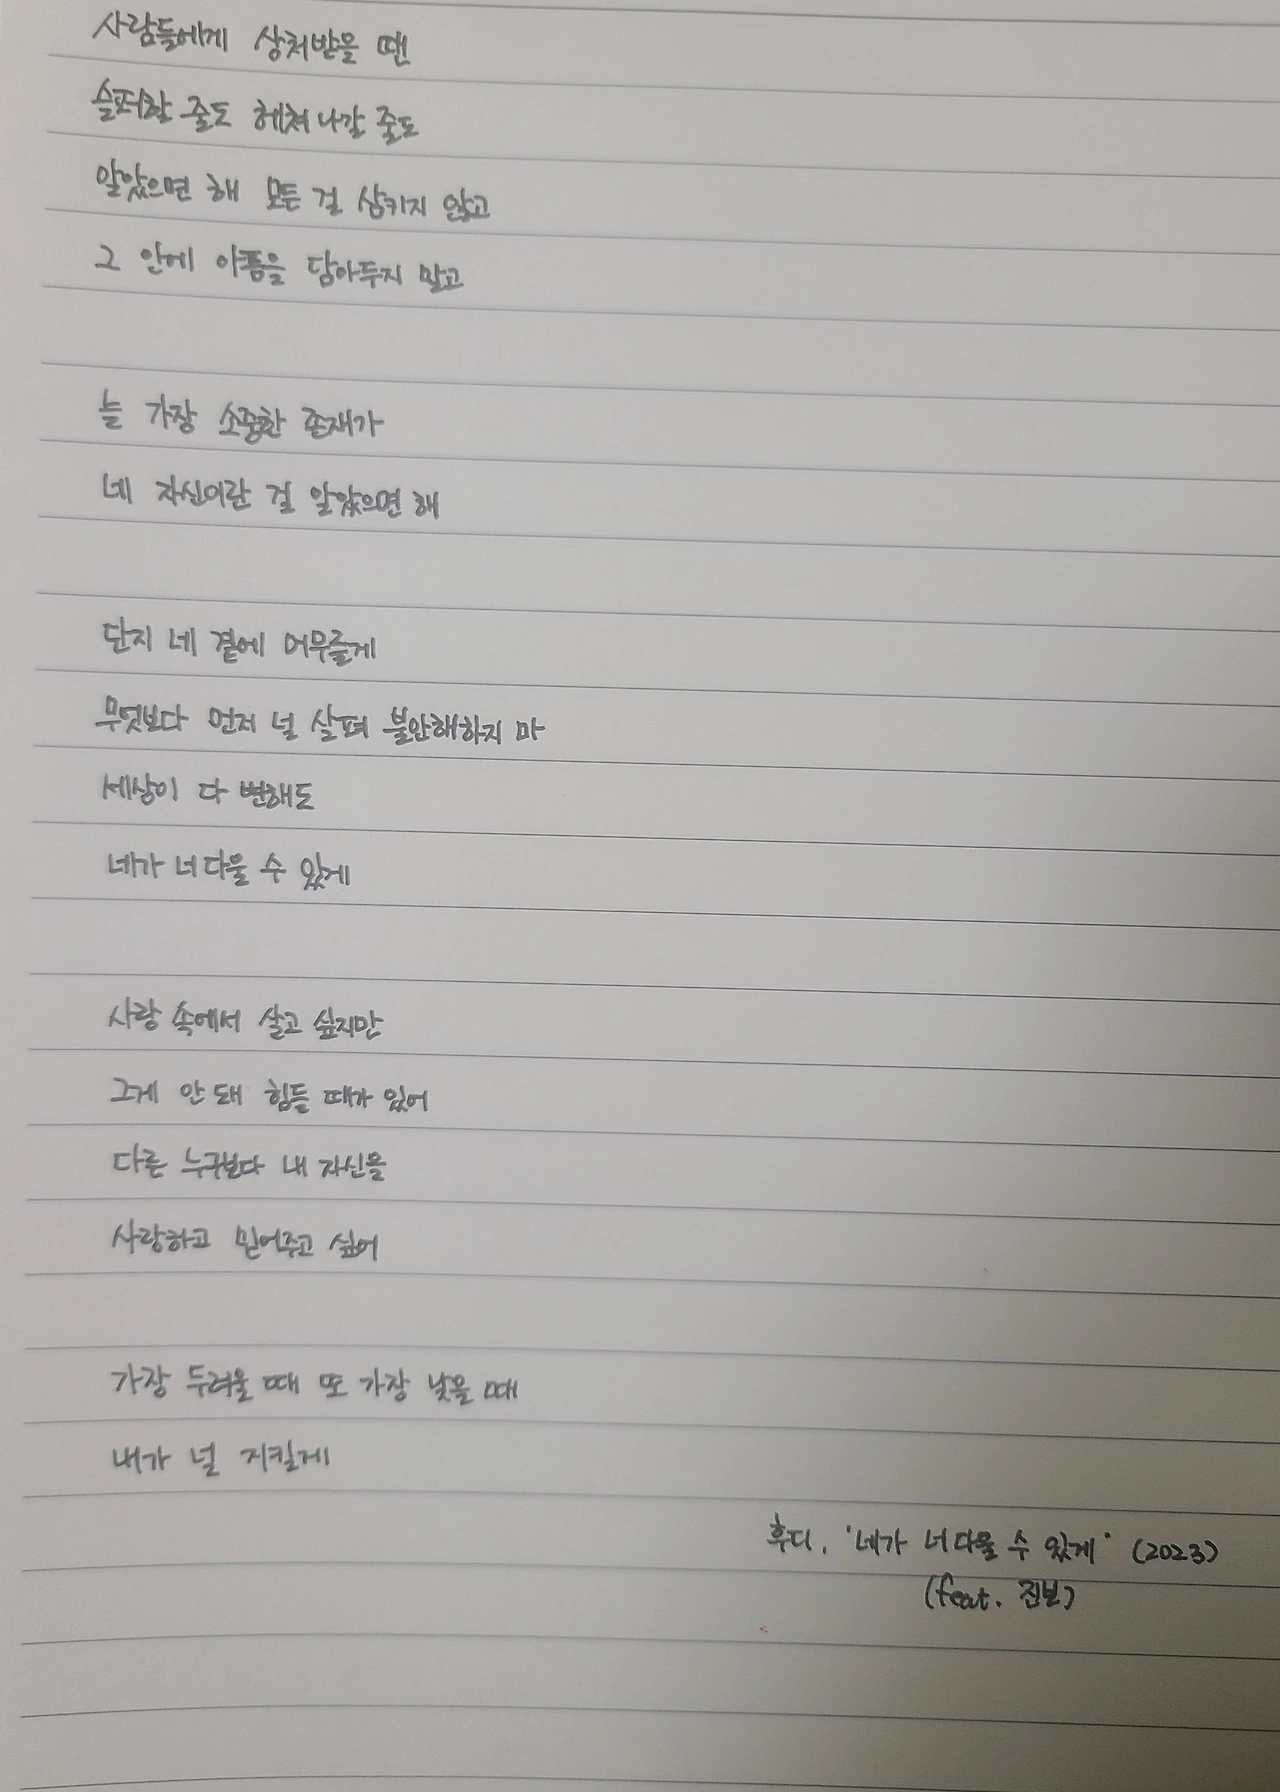 사람들에게 상처받을 땐
슬퍼할 줄도 헤쳐나갈 줄도
알았으면 해 모든 걸 삼키지 않고
그 안에 아픔을 담아두지 말고
늘 가장 소중한 존재가
네 자신이란 걸 알았으면 해
단지 네 곁에 머무를게
무엇보다 먼저 널 살펴 불안해하지 마
세상이 다 변해도
네가 너다울 수 있게
사랑 속에서 살고 싶지만
그게 안 돼 힘들 때가 있어
다른 누구보다 내 자신을
사랑하고 믿어주고 싶어
가장 두려울 때 또 가장 낮을 때
내가 널 지킬게
후디, '네가 너다울 수 있게' (2023)
(feat. 진보)